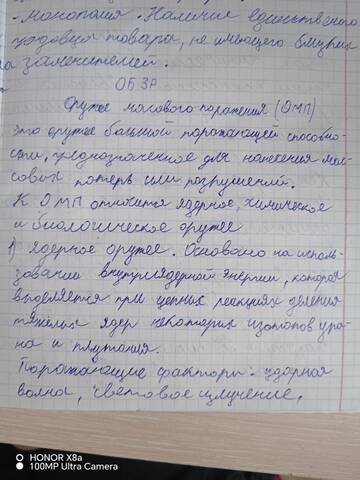 - монополия. Наличие единственного
продавца товара, не имеющего близких
заменителей.
ОБЗР
Оружие массового поражения (ОМП)
это оружие большой поражающей способно-
сти, предназначенное для нанесения мас-
совых потерь или разрушений.
К ОМП относится ядерное, химическое
и биологическое оружие
1) ядерное оружие. Основано на исполь-
зовании внутриядерной энергии, которая
выделяется при цепных реакциях деления
тяжёлых ядер некоторых изотопов ура-
на и плутония.
Поражающие факторы - ударная
волна, световое излучение,
HONOR X8a
100MP Ultra Camera